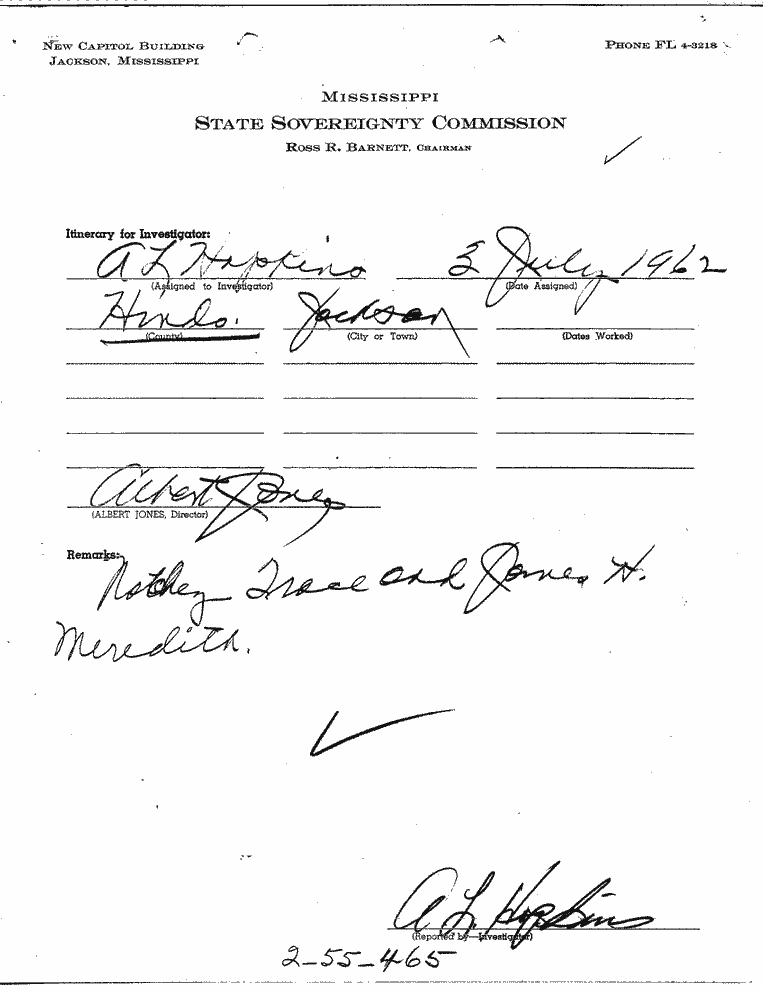 NEW CAPITOL BUILDING
JACKSON, MISSISSIPPI
PHONE FL 4-3218
MISSISSIPPI
STATE SOVEREIGNTY COMMISSION
ROSS R. BARNETT, CHAIRMAN
Itinerary for Investigator:
A L Hopkins 3 July 1962
(Assigned to Investigator) (Date Assigned)
Hinds. Jackson
(County) (City or Town) (Dates Worked)
Albert Jones
(ALBERT JONES, Director)
Remarks:
Natchez Trace and James H.
Meredith.
A. L. Hopkins
(Reported by—Investigator)
2-55-465